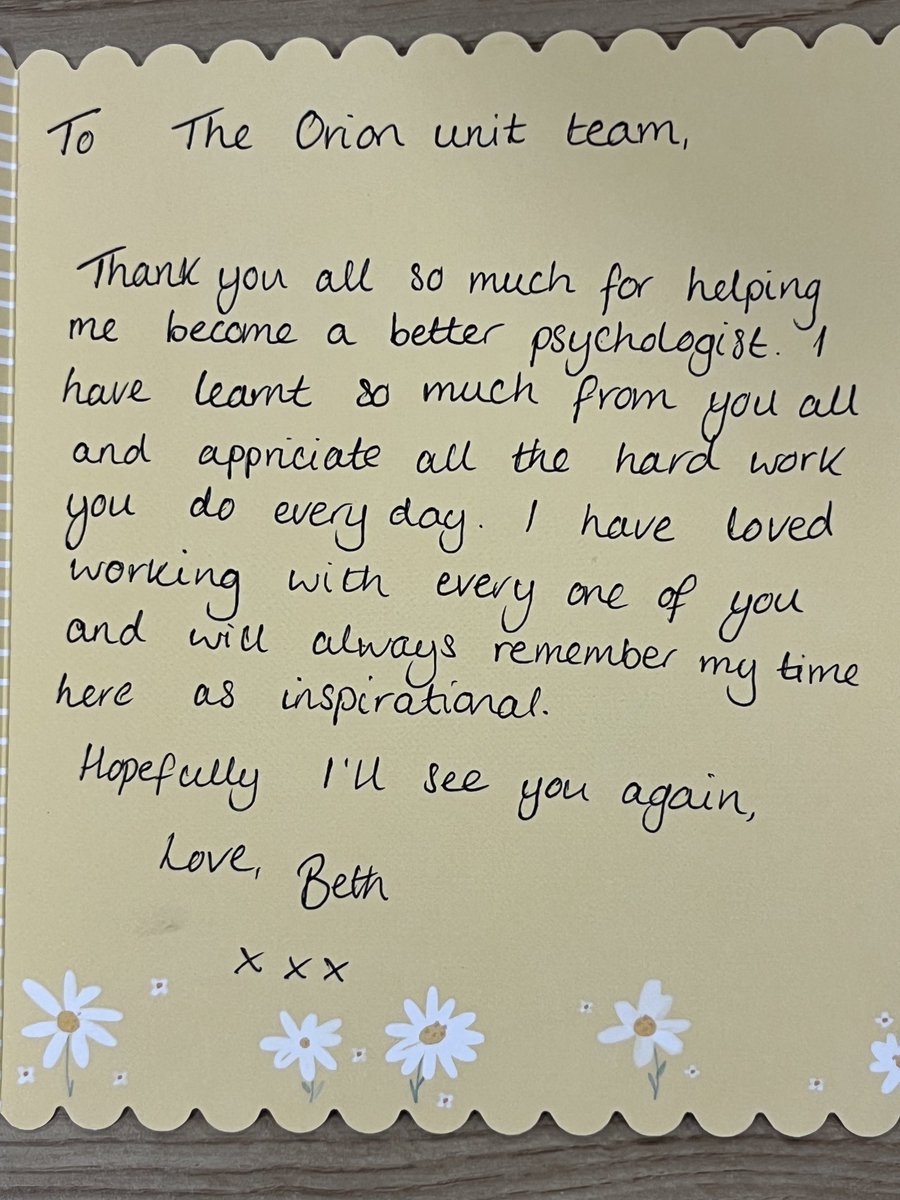 To The Orion unit team,
Thank you all so much for helping
me become a better psychologist. I
have learnt so much from you all
and appriciate all the hard work
you do every day. I have loved
working with every one of you
and will always remember my time
here as inspirational.
Hopefully I'll see you again,
Love, Beth
x x x